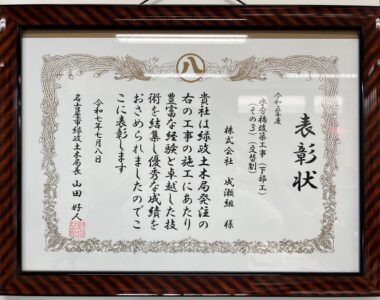 八
表彰状
令和五年度
水分橋改築工事(下部工)
(その3)(交替制)
株式会社 成瀬組 様
貴社は緑政土木局発注の
右の工事の施工にあたり
豊富な経験と卓越した技
術を結集し優秀な成績を
おさめられましたのでこ
こに表彰します
令和七年七月八日
名古屋市緑政土木局長 山田 好人